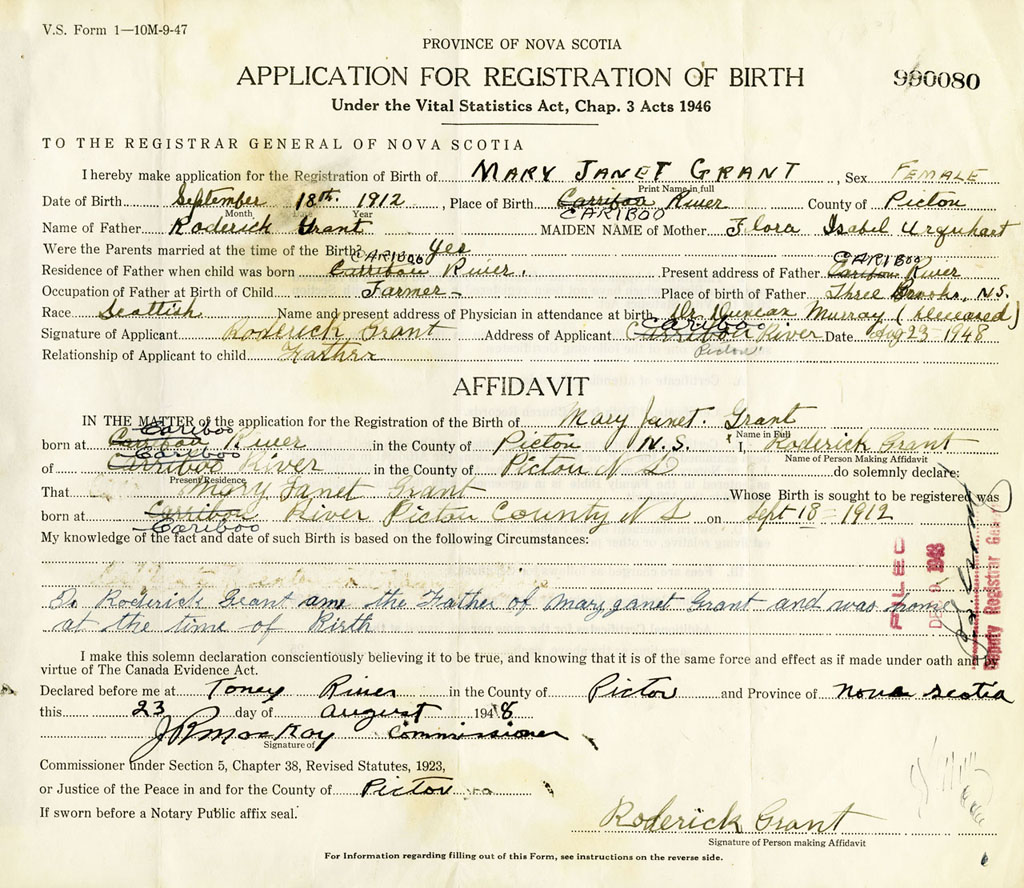 V.S. Form 1—10M-9-47
PROVINCE OF NOVA SCOTIA
APPLICATION FOR REGISTRATION OF BIRTH
990080
Under the Vital Statistics Act, Chap. 3 Acts 1946
TO THE REGISTRAR GENERAL OF NOVA SCOTIA
I hereby make application for the Registration of Birth of MARY JANET GRANT, Sex FEMALE
Print Name in full
Date of Birth September 18th 1912, Place of Birth Carriboo River County of Pictou
Month Day Year CARIBOO
Name of Father Roderick Grant MAIDEN NAME of Mother Flora Isabel Urquhart
Were the Parents married at the time of the Birth? yes
CARIBOO CARIBOO
Residence of Father when child was born Carribou River. Present address of Father Caribou River
Occupation of Father at Birth of Child Farmer Place of birth of Father Three Brooks, N.S.
Race Scottish Name and present address of Physician in attendance at birth Dr Duncan Murray (deceased)
Cariboo
Signature of Applicant Roderick Grant Address of Applicant River Date Aug 23-1948
Relationship of Applicant to child Father Pictou
AFFIDAVIT
IN THE MATTER of the application for the Registration of Birth of Mary Janet. Grant
Cariboo Name in Full
born at River in the County of Pictou N.S. I, Roderick Grant
Cariboo Name of Person Making Affidavit
of Carriboo River in the County of Pictou N S do solemnly declare:
Present Residence
That Mary Janet Grant Whose Birth is sought to be registered was
born at Carribou River Pictou County N S on Sept 18 - 1912
Cariboo
My knowledge of the fact and date of such Birth is based on the following Circumstances:
I, Roderick Grant am the Father of Mary Janet Grant and was home
at the time of Birth
FILED
DEC 9 1948
Deputy Registrar General
I make this solemn declaration conscientiously believing it to be true, and knowing that it is of the same force and effect as if made under oath and by
virtue of The Canada Evidence Act.
Declared before me at Toney River in the County of Pictou and Province of Nova Scotia
this 23 day of August 1948
J R MacKay Commissioner
Signature of
Commissioner under Section 5, Chapter 38, Revised Statutes, 1923,
or Justice of the Peace in and for the County of Pictou
If sworn before a Notary Public affix seal.
Roderick Grant
Signature of Person making Affidavit
For Information regarding filling out of this Form, see instructions on the reverse side.